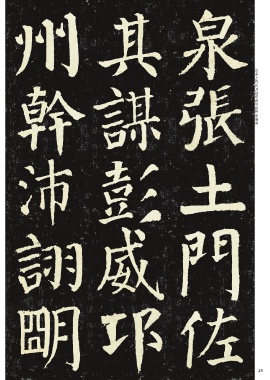 泉張土門佐
其謀彭威邛
州幹沛詡朙